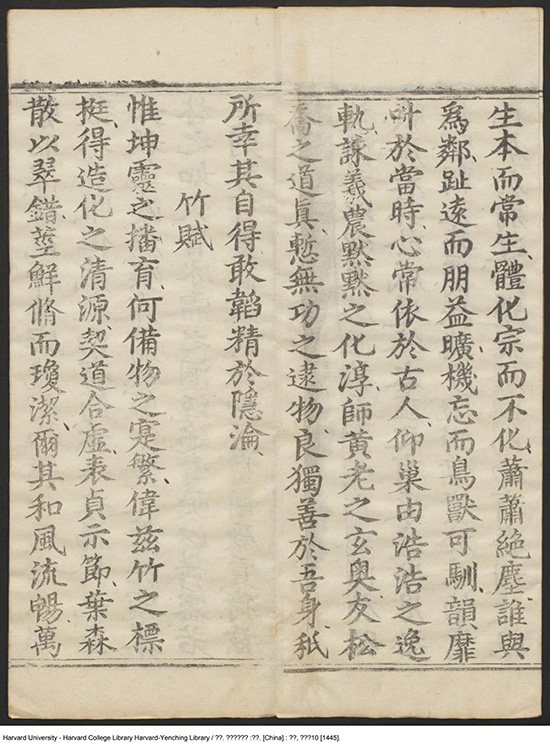 生本而常生體化宗而不化蕭蕭絶塵誰與
爲鄰趾遠而朋益曠機忘而鳥獸可馴韻靡
叶於當時心常依於古人仰巢由浩浩之逸
軌詠羲農黙黙之化淳師黄老之玄奥友松
喬之道眞慙無功之逮物良獨善於吾身秖
所幸其自得敢韜精於隱淪
竹賦
惟坤靈之播育何備物之寔繁偉兹竹之標
挺得造化之清源契道合虚表貞示節葉森
散以翠錯莖鮮脩而瓊潔爾其和風流暢萬
Harvard University - Harvard College Library Harvard-Yenching Library / ??. ?????? :??. [China] : ??, ???10 [1445].